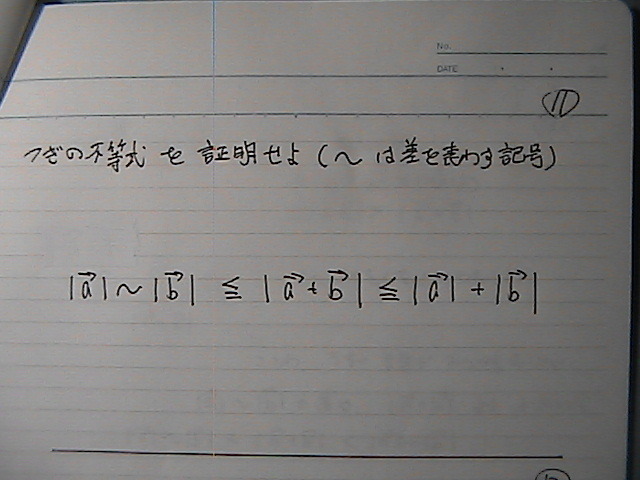 No.
DATE
⑪
つぎの不等式 を 証明せよ (～ は差を表わす記号)
|a⃗|～|b⃗| ≦ |a⃗+b⃗| ≦ |a⃗|+|b⃗|